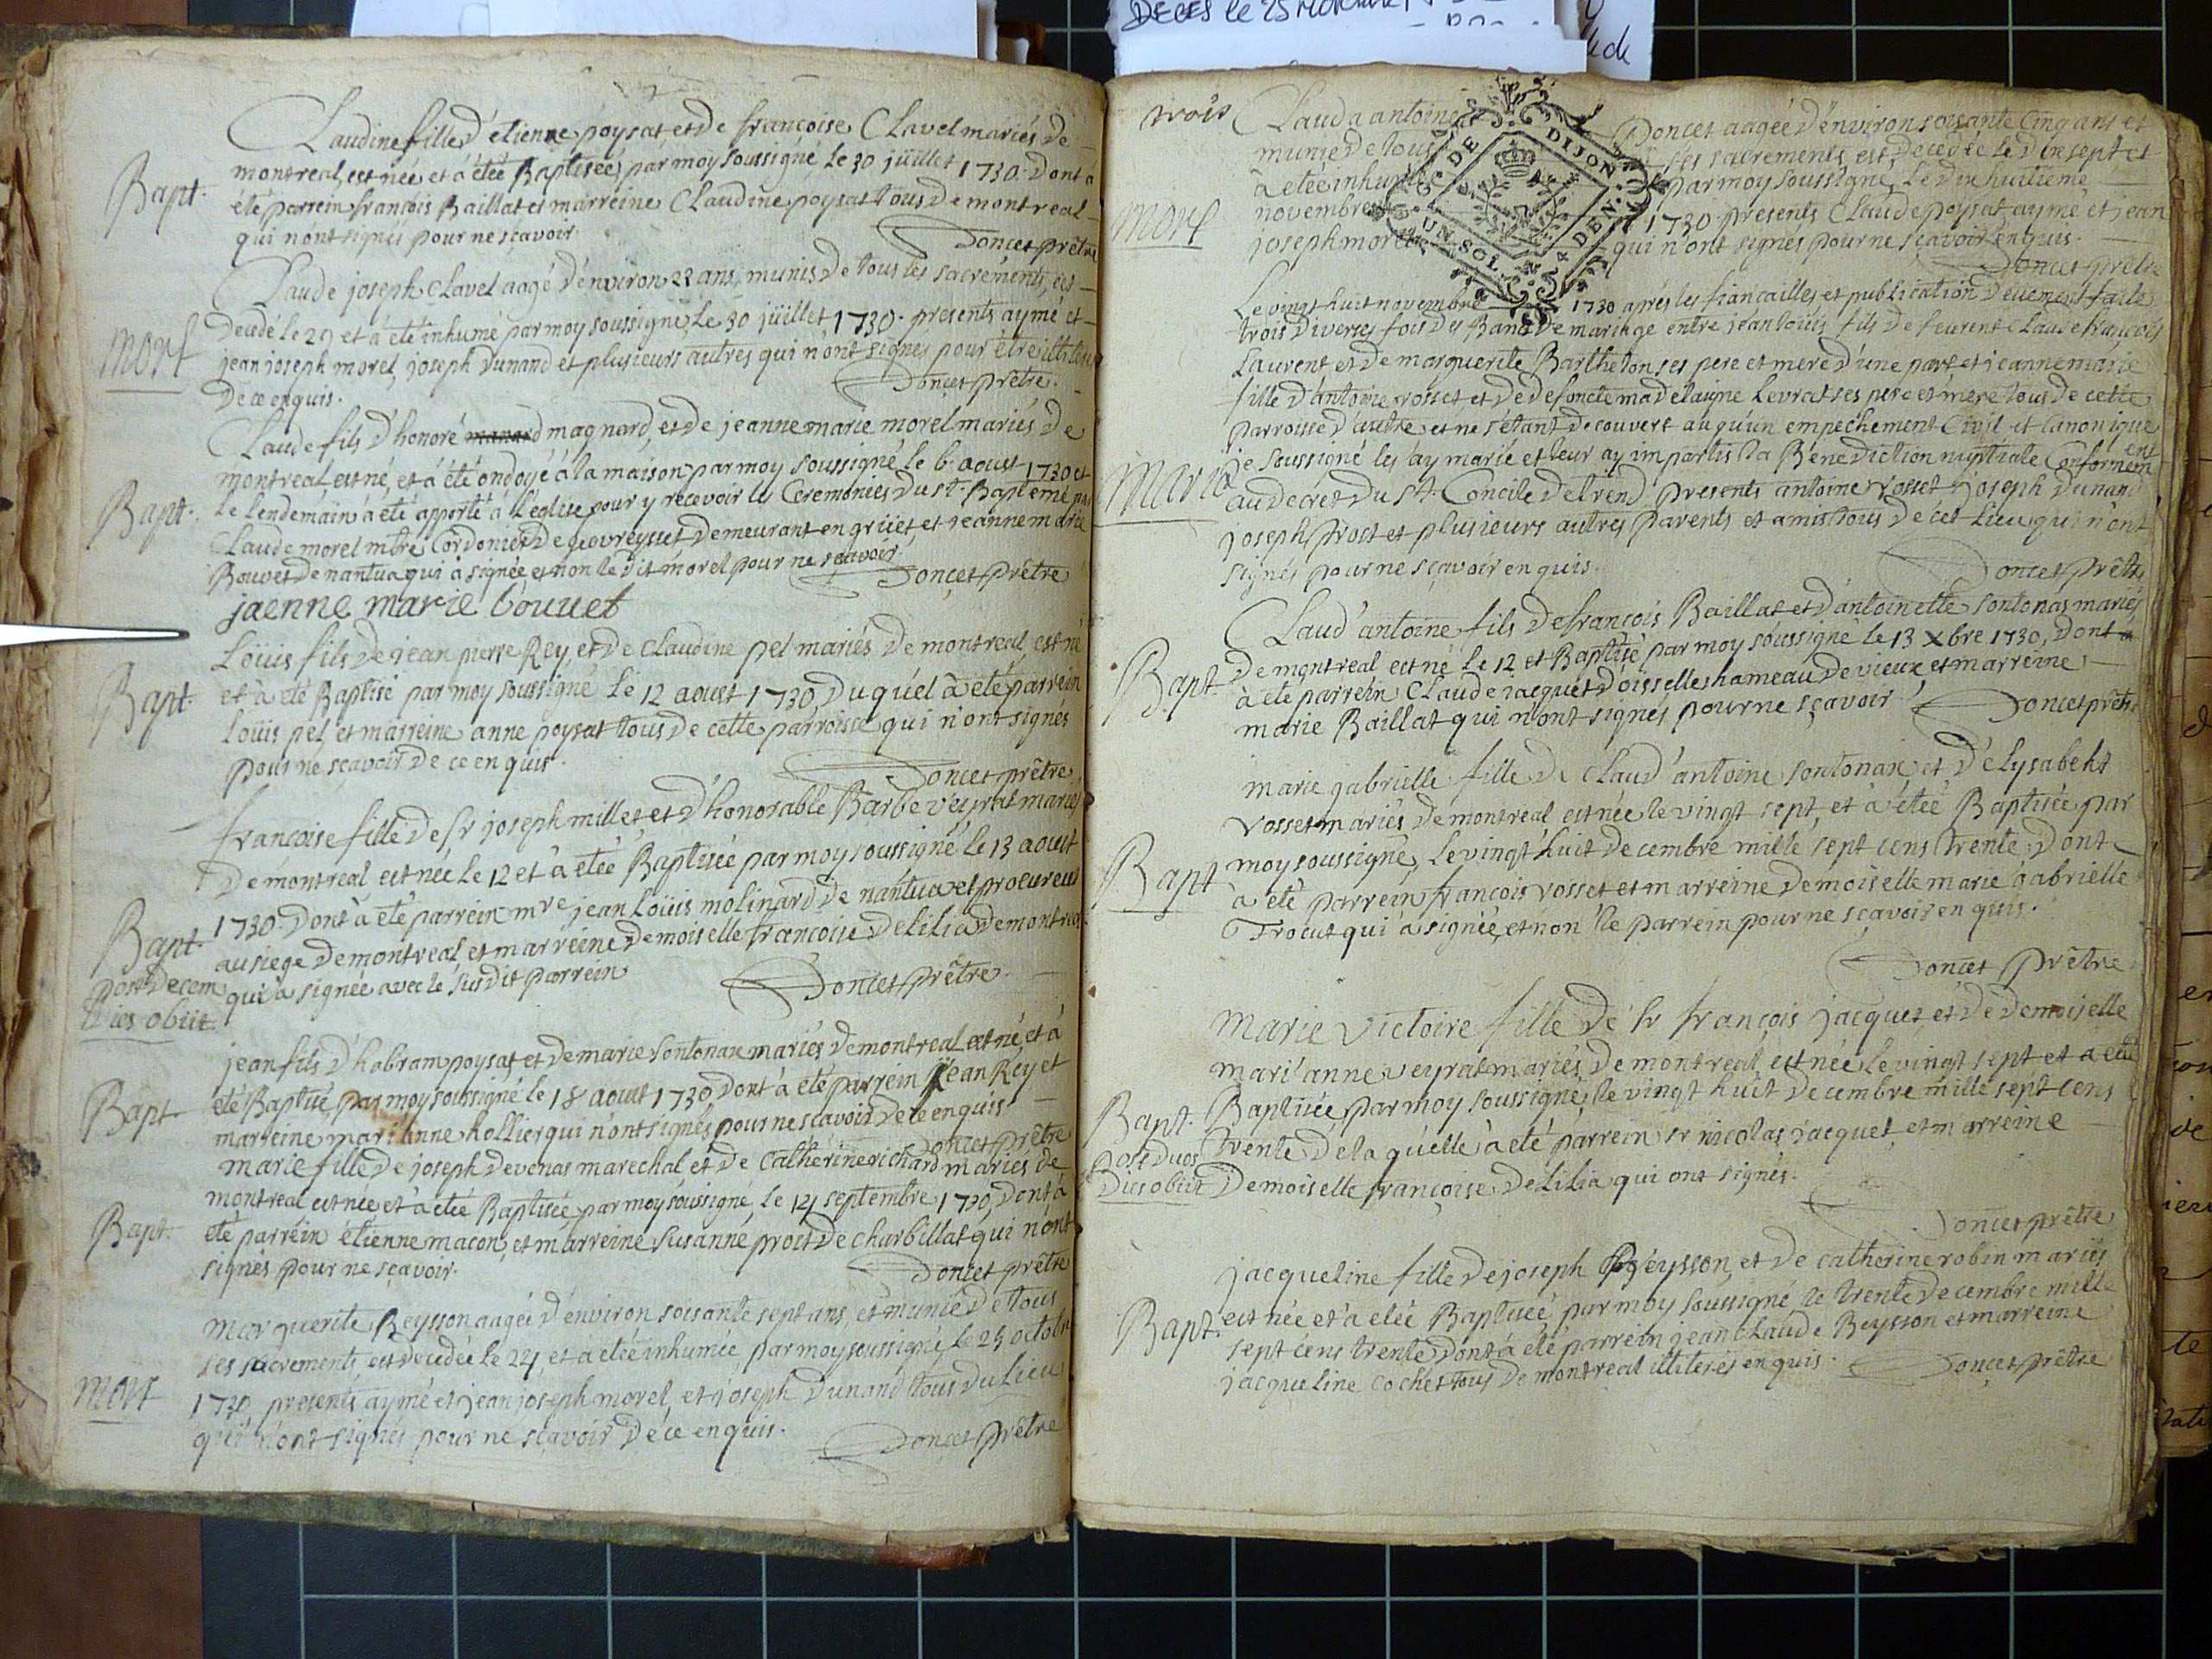 Decès le 25
Claudine fille d'étienne poysat et de françoise Clavel mariés de
montreal, est née et à étée Baptisée, par moy soussigné le 30 jüillet 1730. Dont à
Bapt.
été parrein françois Baillat et marreine Claudine poysat tous de montreal
qui n'ont signés pour ne sçavoir.
Doncet prêtre
Claude joseph Clavel aagé d'environ 22 ans, munis de tous les sacrements, est
Decedé le 29 et à été inhumé par moy soussigné le 30 jüillet 1730. presents aymé et
mort
jean joseph morel, joseph Dunand et plusieurs autres qui n'ont signés pour être
De ce enquis.
Doncet prêtre.
Claude fils d'honoré magnard, et de jeanne marie morel mariés de
montreal est né, et à été ondoyé à la maison par moy soussigné le 6. aoust 1730 et
Bapt.
le lendemain à été apporté à l'eglise pour y recevoir les Ceremonies du st. Baptême par
Claude morel mtre Cordonier de geovreysset Demeurant en grüet et jeanne marie
Bouvet de nantua qui à signée et non le dit morel pour ne sçavoir.
Doncet prêtre
jaenne marie bouuet
Loüis fils de jean pierre Rey, et de Claudine pel mariés de montreal, est né
et à été Baptisé par moy soussigné le 12 aoust 1730, Duquel à été parrein
Bapt.
Loüis pel, et marreine anne poysat tous de cette parroisse qui n'ont signés
pour ne scavoir de ce enquis.
Doncet prêtre
françoise fille de sr joseph millet et d'honorable Barbe veyrat mariés
de montreal est née le 12 et à étée Baptisée par moy soussigné le 13 aoust
1730. Dont à été parrein mre jean Loüis molinard de nantua et procureur
Bapt.
au siege de montreal, et marreine Demoiselle françoise Delilia de montreal
post decem
qui à signée avec le susdit parrein
Doncet prêtre.
dies obiit
jean fils d'habram poysat et de marie sontonax mariés de montreal est né, et à
Bapt.
été Baptisé par moy soussigné le 18 aoust 1730 dont à été parrein jean Rey et
marreine mari anne hollier qui n'ont signés pour ne scavoir de ce enquis
Doncet prêtre
marie fille de joseph Devenas marechal et de Catherine richard mariés de
montreal est née et à étée Baptisée par moy soussigné, le 14 septembre 1730, dont à
Bapt.
été parrein étienne macon, et marreine Susanne prost de charbillat qui n'ont
signés pour ne sçavoir.
Doncet prêtre
marguerite Beysson aagée d'environ soisante sept ans, et munie de tous
ses sacrements est decedée le 24 et à étée inhumée par moy soussigné, le 25 octobre
mort
1730 presents aymé et jean joseph morel, et joseph Dunand tous du lieu
qui n'ont signés pour ne sçavoir de ce enquis.
Doncet prêtre
trois
Clauda antoine Doncet aagée d'environ soisante Cinq ans et
munie de tous ses sacrements, est decedée le dix sept et
à étée inhumée par moy soussigné, le dix huitieme
mort
novembre 1730 presents Claude poysat aymé et jean
joseph morel qui n'ont signés pour ne sçavoir enquis.
Doncet prêtre
G. DE DIJON
UN SOL 4 DEN.
Le vingt huit novembre 1730 aprés les fiancailles et publication deuement faite
trois diverses fois des Bans de mariage entre jean loüis fils de feurent Claude françois
Laurent et de marguerite Barthelon ses pere et mere d'une part et jeanne marie
fille d'antoine rosset et de defuncte madelaigne Levrat ses pere et mere tous de cette
parroisse d'autre, et ne s'étant decouvert auqu'un empéchement Civil et Canonique
je soussigné les ay marié et leur ay impartis la Benediction nuptiale Conformement
mariage
au decret du st. Concile de trend, presents antoine rosset joseph Dunand
joseph Prost et plusieurs autres parents et amis tous de cet lieu qui n'ont
signés pour ne sçavoir enquis.
Doncet prêtre
Claud'antoine fils de françois Baillat et d'antoinette sontonas mariés
de montreal est né le 12 et Baptisé par moy soussigné le 13 Xbre 1730, dont à
Bapt.
à été parrein Claude jacquet d'oisselle hameau de vieux et marreine
marie Baillat qui n'ont signés pour ne sçavoir.
Doncet prêtre
marie gabrielle fille de Claud'antoine sontonax, et d'Elysabeht
rosset mariés de montreal est née le vingt sept, et à étée Baptisée par
Bapt
moy soussigné, le vingt huit decembre mille sept cens trente, dont
à été parrein françois rosset et marreine demoiselle marie gabrielle
Trocut qui à signée, et non le parrein pour ne sçavoir enquis.
Doncet prêtre
Marie Victoire fille de sr françois jacquet et de demoiselle
mari'anne veyrat mariés de montreal, est née le vingt sept et à été
Bapt.
Baptisée par moy soussigné, le vingt huit decembre mille sept cens
post duos
trente, de la qu'elle à été parrein sr nicolas jacquet, et marreine
dies obiit
Demoiselle françoise Delilia qui ont signés.
Doncet prêtre
jacqueline fille de joseph Beysson, et de catherine robin mariés
Bapt.
est née et à étée Baptisée par moy soussigné le trente decembre mille
sept cens trente, dont à été parrein jean Claude Beysson et marreine
jacqueline cochet tous de montreal illiterés enquis.
Doncet prêtre